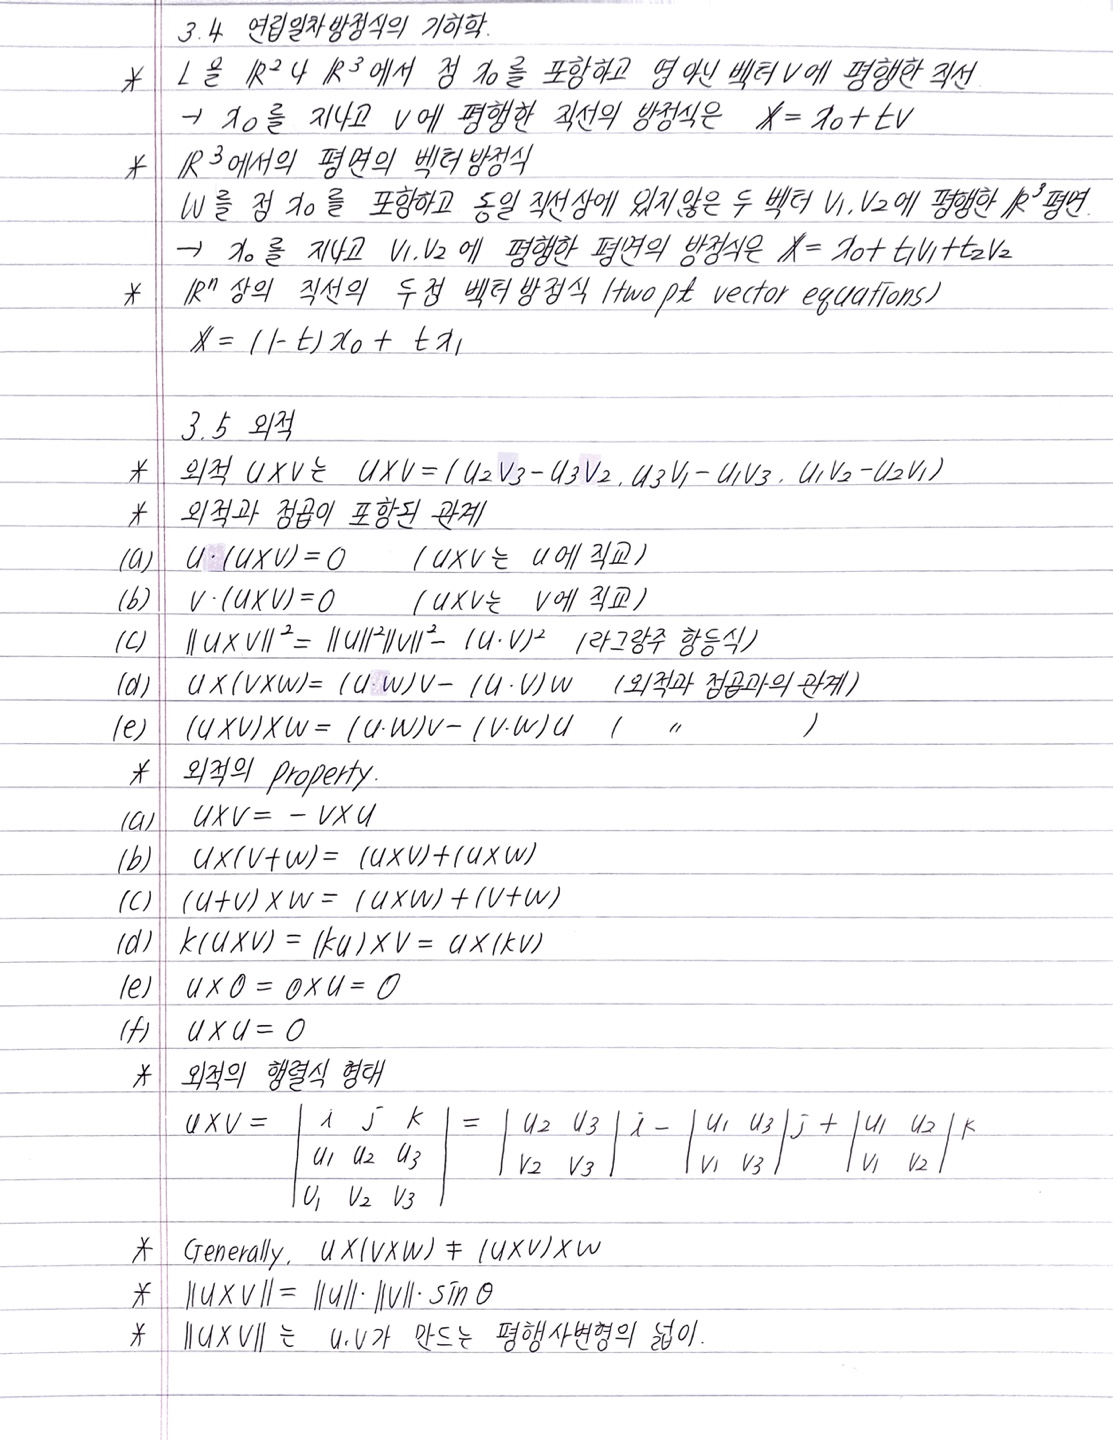 3.4 연립일차방정식의 기하학.
* L을 R²나 R³에서 점 x₀를 포함하고 영 아닌 벡터 v에 평행한 직선
→ x₀를 지나고 v에 평행한 직선의 방정식은 X = x₀ + tv
* R³에서의 평면의 벡터방정식
W를 점 x₀를 포함하고 동일 직선상에 있지않은 두 벡터 v₁, v₂에 평행한 R³평면.
→ x₀를 지나고 v₁, v₂에 평행한 평면의 방정식은 X = x₀ + t₁v₁ + t₂v₂
* Rⁿ상의 직선의 두점 벡터방정식 (two pt vector equations)
X = (1-t)x₀ + tx₁
3.5 외적
* 외적 u×v는 u×v = (u₂v₃ - u₃v₂, u₃v₁ - u₁v₃, u₁v₂ - u₂v₁)
* 외적과 점곱이 포함된 관계
(a) u·(u×v) = 0 (u×v는 u에 직교)
(b) v·(u×v) = 0 (u×v는 v에 직교)
(c) ||u×v||² = ||u||²||v||² - (u·v)² (라그랑주 항등식)
(d) u×(v×w) = (u·w)v - (u·v)w (외적과 점곱과의 관계)
(e) (u×v)×w = (u·w)v - (v·w)u ( 〃 )
* 외적의 property.
(a) u×v = - v×u
(b) u×(v+w) = (u×v)+(u×w)
(c) (u+v)×w = (u×w)+(v+w)
(d) k(u×v) = (ku)×v = u×(kv)
(e) u×0 = 0×u = 0
(f) u×u = 0
* 외적의 행렬식 형태
u×v = | i j k | = | u₂ u₃ | i - | u₁ u₃ | j + | u₁ u₂ | k
| u₁ u₂ u₃ | | v₂ v₃ | | v₁ v₃ | | v₁ v₂ |
| v₁ v₂ v₃ |
* Generally, u×(v×w) ≠ (u×v)×w
* ||u×v|| = ||u||·||v||·sin θ
* ||u×v||는 u,v가 만드는 평행사변형의 넓이.